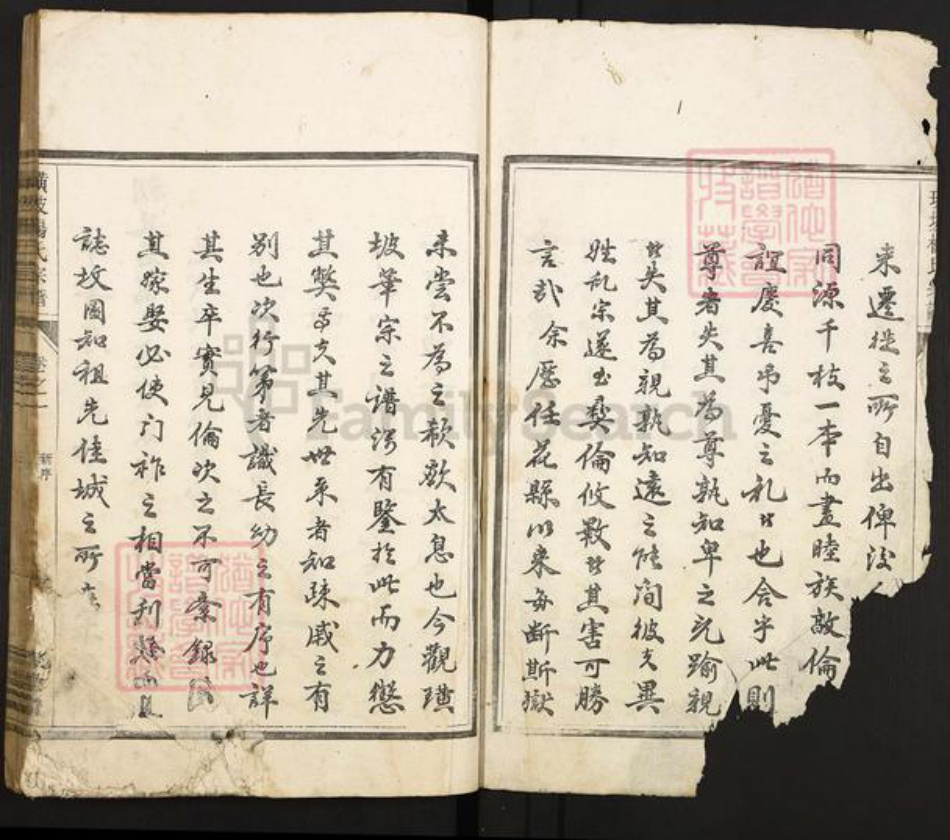 来遷徙之所自出俾後人
同源千枝一本而盡睦族敵倫
誼慶喜弔憂之礼者也合乎此則
尊者失其為尊孰知卑之冗踰親
者失其為親孰知遠之能間彼夫異
姓乱宗遂至彝倫攸斁其害可勝
言哉余歷任花縣以来每斷斯獄
未嘗不為之欷歔太息也今觀璜
坡葦宗之譜湥有鑒於此而力懲
其弊夫其先世系者知疎戚之有
别也次行第者識長幼之有序也詳
其生卒實見倫次之不可紊錄
其嫁娶必使门祚之相當
誌坟圖知祖先佳城之所
璜坡楊氏宗譜
卷之一
新序
FamilySearch